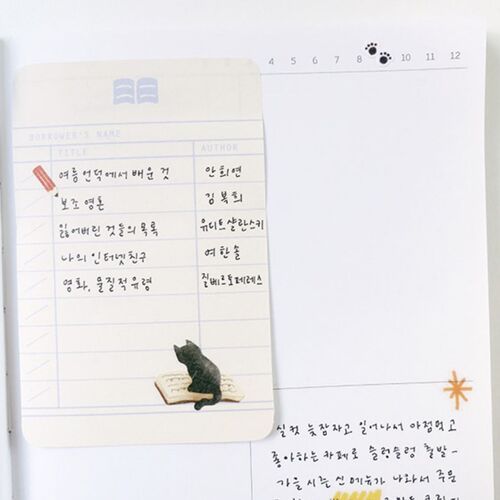 4 5 6 7 8 10 11 12
BORROWER'S NAME
TITLE AUTHOR
여름 언덕에서 배운 것 안희연
보조 영혼 김복희
잃어버린 것들의 목록 유디트샬란스키
나의 인터넷친구 여한솔
영화, 물질적 유령 질베르토페레스
실컷 늦잠자고 일어나서 아점먹고
좋아하는 카페로 슬렁슬렁 출발-
가을 시즌 신메뉴가 나와서 주문